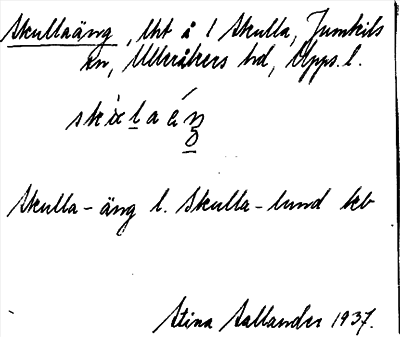 Skullaäng, lht å 1 Skulla, Jumkils
sn, Ulleråkers hd, Upps. l.
Skulla-äng l. Skulla-lund beb
Stina Sallander 1937.